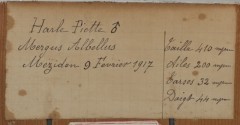 Harle Piette ♂
Mergus Albellus
Mézidon 9 Février 1917
Taille 410 m/m
Ailes 200 m/m
Tarses 32 m/m
Doigt 44 m/m